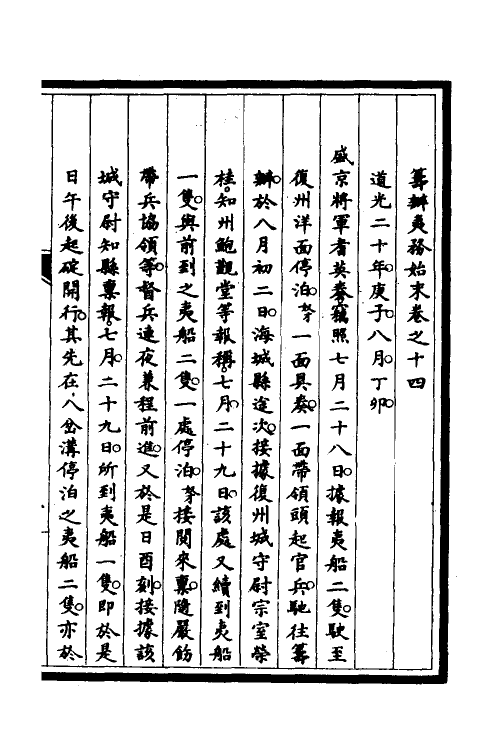 籌辦夷務始末卷之十四
道光二十年。庚子。八月。丁卯。
盛京將軍耆英奏。竊照七月二十八日。據報夷船二隻。駛至
復州洋面停泊。奴才一面具奏。一面帶領頭起官兵。馳往籌
辦。於八月初二日。海城縣途次。接據復州城守尉宗室榮
桂。知州鮑觀堂等報稱。七月二十九日。該處又續到夷船
一隻。與前到之夷船二隻。一處停泊。奴才接閱來稟。隨嚴飭
帶兵協領等。督兵連夜兼程前進。又於是日酉刻。接據該
城守尉知縣稟報。七月二十九日。所到夷船一隻。即於是
日午後起碇開行。其先在八岔溝停泊之夷船二隻。亦於